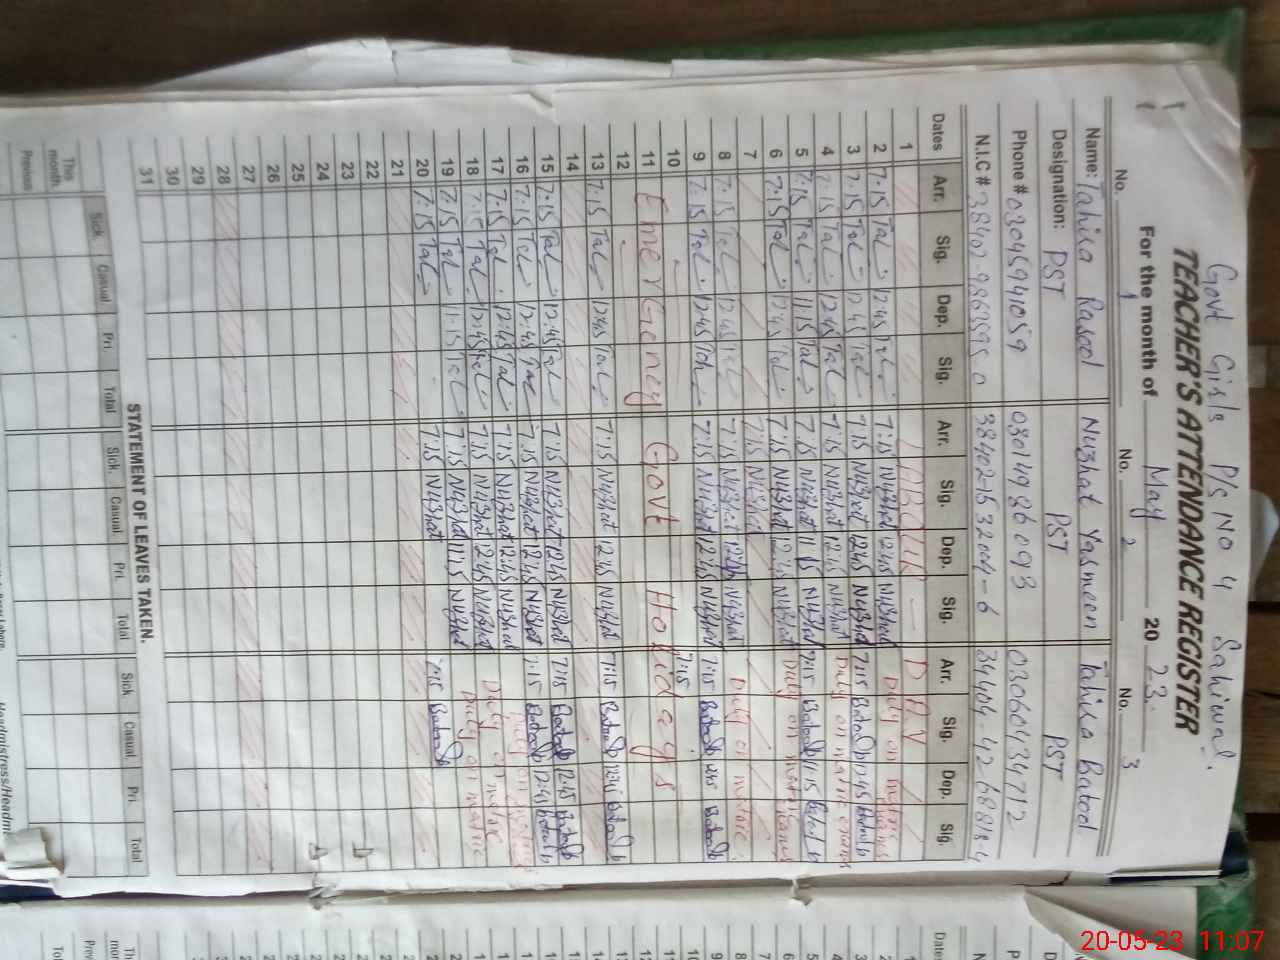 Govt Girls P/S No 4 Sahiwal.
TEACHER'S ATTENDANCE REGISTER
For the month of May 2023.
No. 1 No. 2 No. 3
Name: Tahira Rasool Nuzhat Yasmeen Tahira Batool
Designation: PST PST PST
Phone # 03045941059 03014986093 03060434712
N.I.C #
Dates Arr. Sig. Dep. Sig. Arr. Sig. Dep. Sig. Arr. Sig. Dep. Sig.
1 LABOUR DAY
2 7:15 Tal 12:45 Tal 7:15 Nuzhat 12:45 Nuzhat Duty on matric exams
3 7:15 Tal 12:45 Tal 7:15 Nuzhat 12:45 Nuzhat 7:15 Batool 12:45 Batool
4 7:15 Tal 12:45 Tal 7:15 Nuzhat 12:45 Nuzhat Duty on matric exams
5 7:15 Tal 11:15 Tal 7:15 Nuzhat 11:15 Nuzhat 7:15 Batool 11:15 Batool
6 7:15 Tal 12:45 Tal 7:15 Nuzhat 12:45 Nuzhat Duty on matric exams
7 7:15 Nuzhat
8 7:15 Tal 12:45 Tal 7:15 Nuzhat 12:45 Nuzhat Duty on matric
9 7:15 Tal 12:45 Tal 7:15 Nuzhat 12:45 Nuzhat 7:15 Batool 12:45 Batool
10 7:15
11 Emergency Govt Holidays
12
13 7:15 Tal 12:45 Tal 7:15 Nuzhat 12:45 Nuzhat 7:15 Batool 12:45 Batool
14
15 7:15 Tal 12:45 Tal 7:15 Nuzhat 12:45 Nuzhat 7:15 Batool 12:45 Batool
16 7:15 Tal 12:45 Tal 7:15 Nuzhat 12:45 Nuzhat 7:15 Batool 12:45 Batool
17 7:15 Tal 12:45 Tal 7:15 Nuzhat 12:45 Nuzhat Duty on matric
18 7:15 Tal 12:45 Tal 7:15 Nuzhat 12:45 Nuzhat Duty on matric
19 7:15 Tal 11:15 Tal 7:15 Nuzhat 11:15 Nuzhat Duty on matric
20 7:15 Tal 7:15 Nuzhat 7:15 Batool
21
22
23
24
25
26
27
28
29
30
31
STATEMENT OF LEAVES TAKEN.
Sick. Casual Pri. Total Sick. Casual Pri. Total Sick Casual Pri. Total
This month.
Previous
20-05-23 11:07